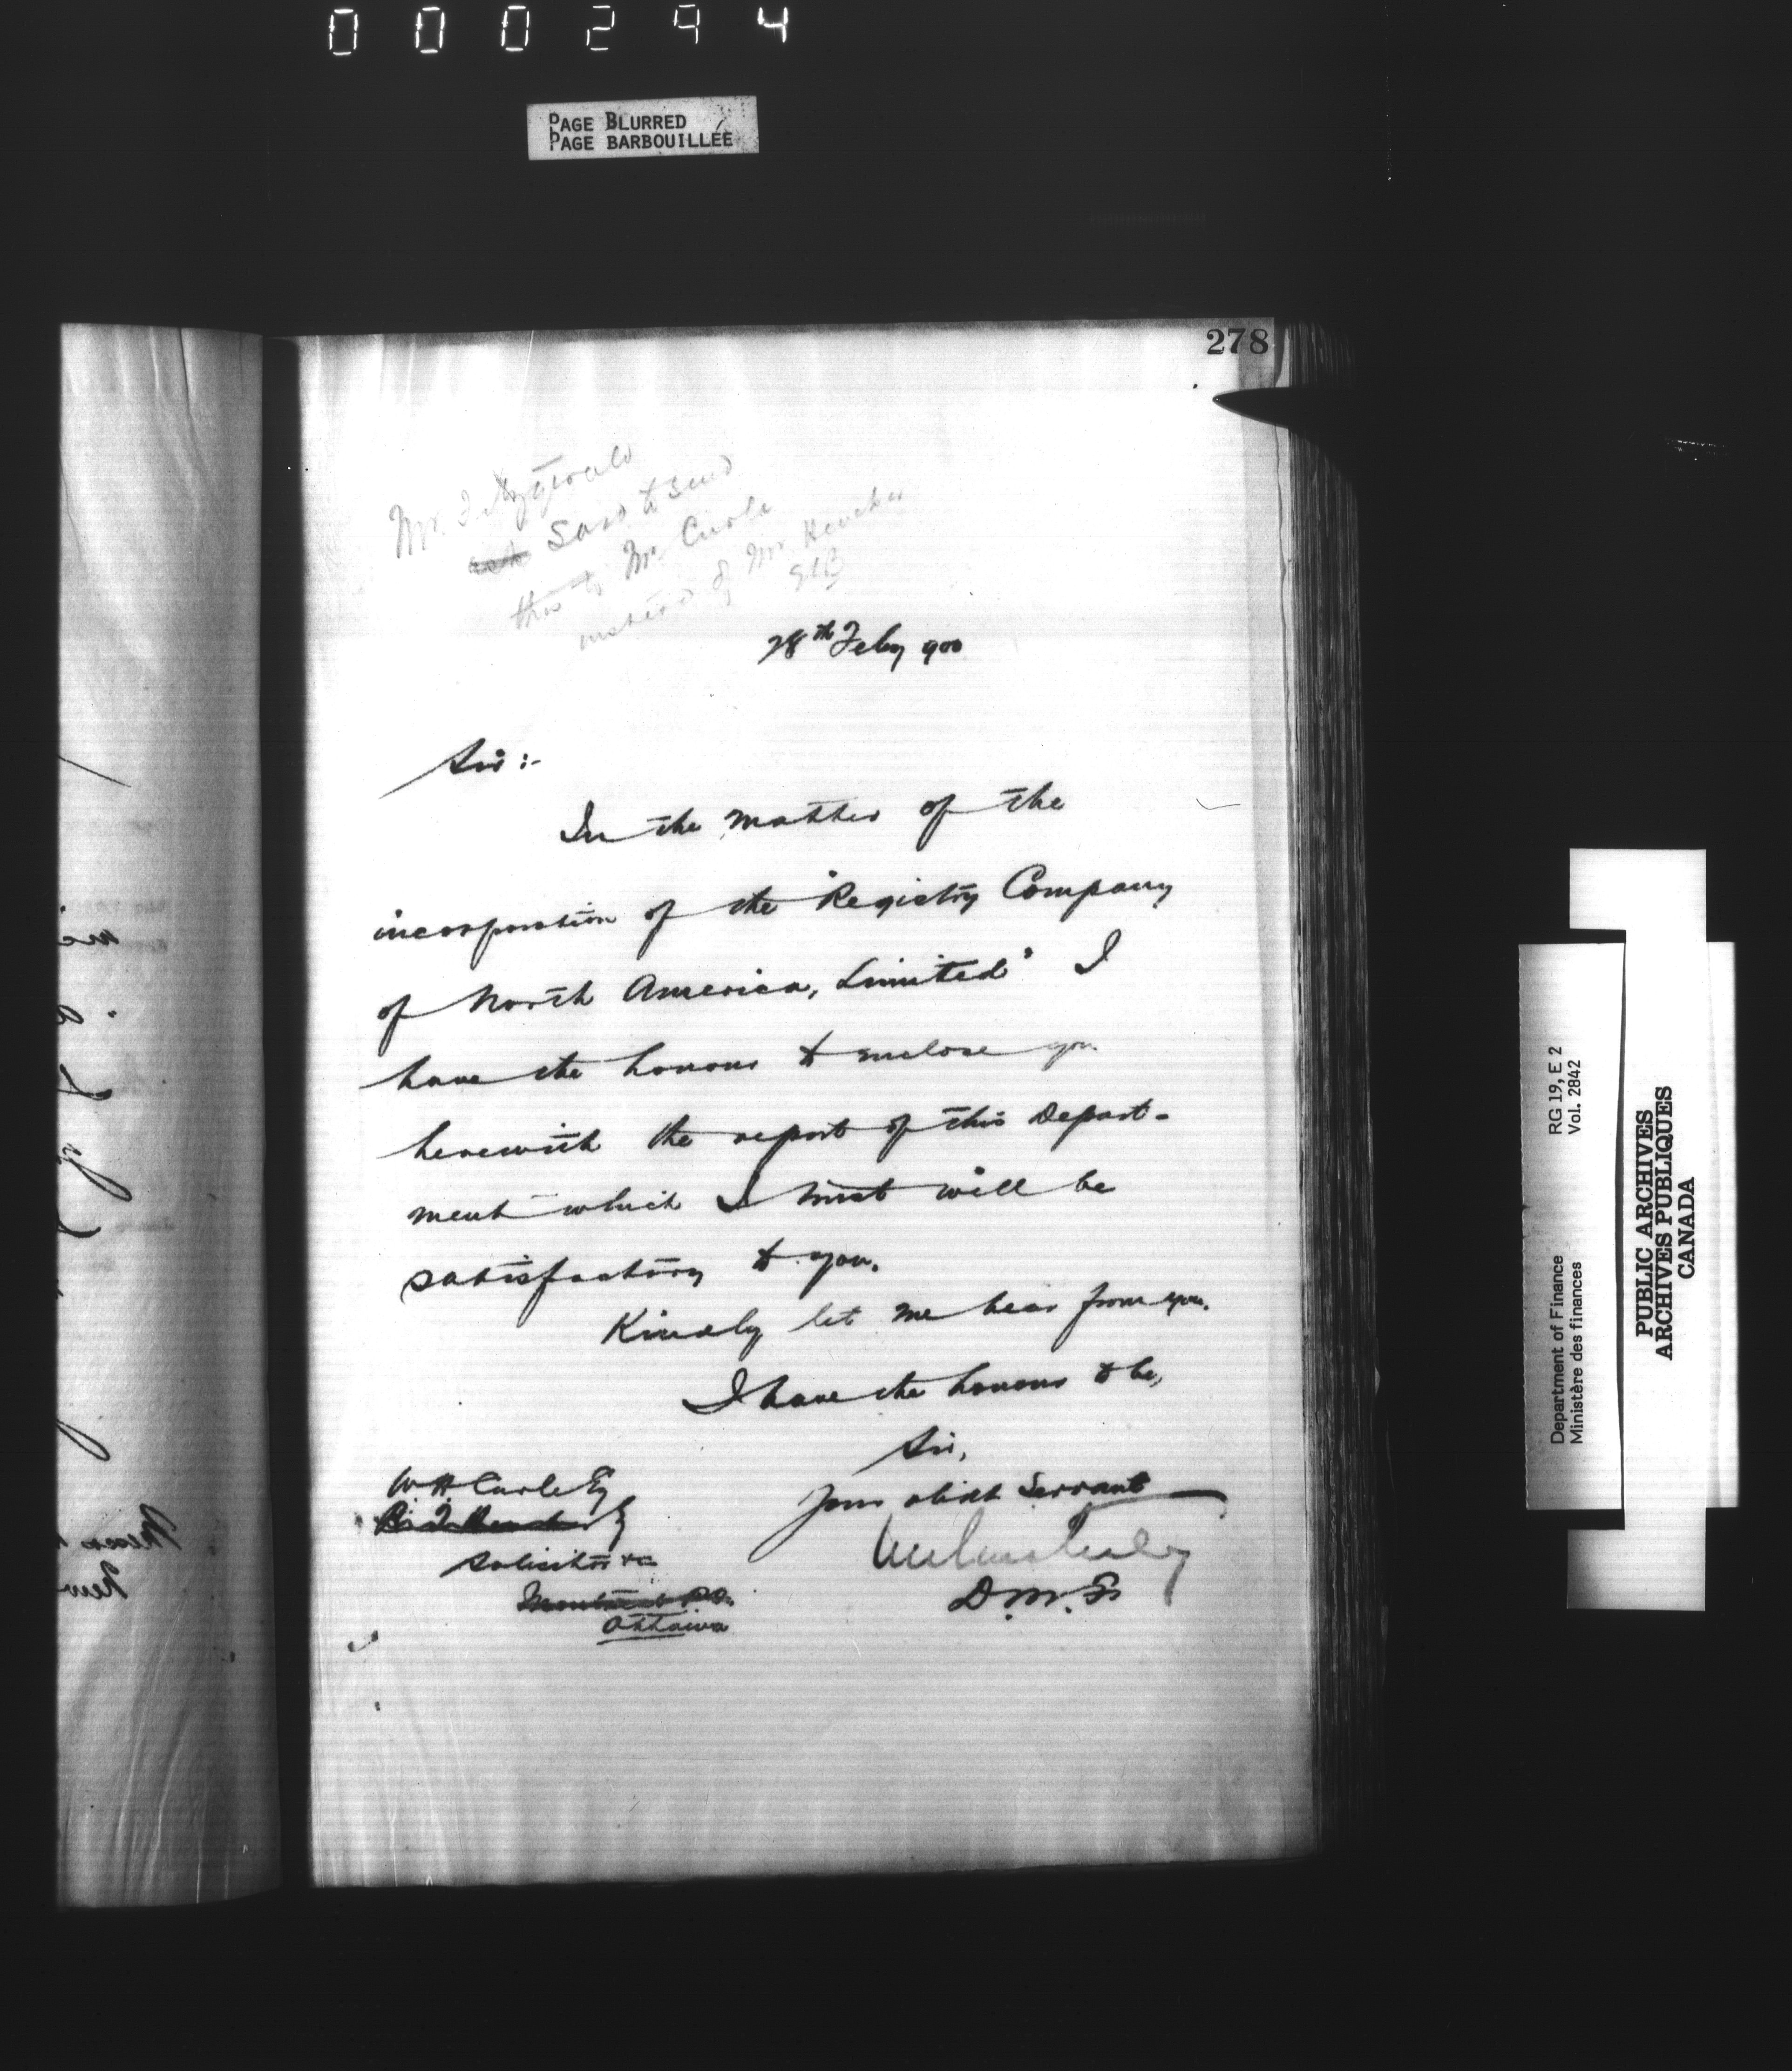 000294
PAGE BLURRED
PAGE BARBOUILLÉE
278
Mr. Fitzgerald
said to send
this to Mr. Curle
instead of Mr. Heneker
28th Feby 900
Sir :-
In the matter of the
incorporation of the "Registry Company
of North America, Limited" I
have the honour to enclose you
herewith the report of this Depart-
ment which I trust will be
satisfactory to you.
Kindly let me hear from you.
I have the honour to be,
Sir,
Your obedt Servant
D.M.F.
W H Curle Esq
Solicitor &c
Montreal P.Q.
Ottawa
RG 19, E 2
Vol. 2842
Department of Finance
Ministère des finances
PUBLIC ARCHIVES
ARCHIVES PUBLIQUES
CANADA